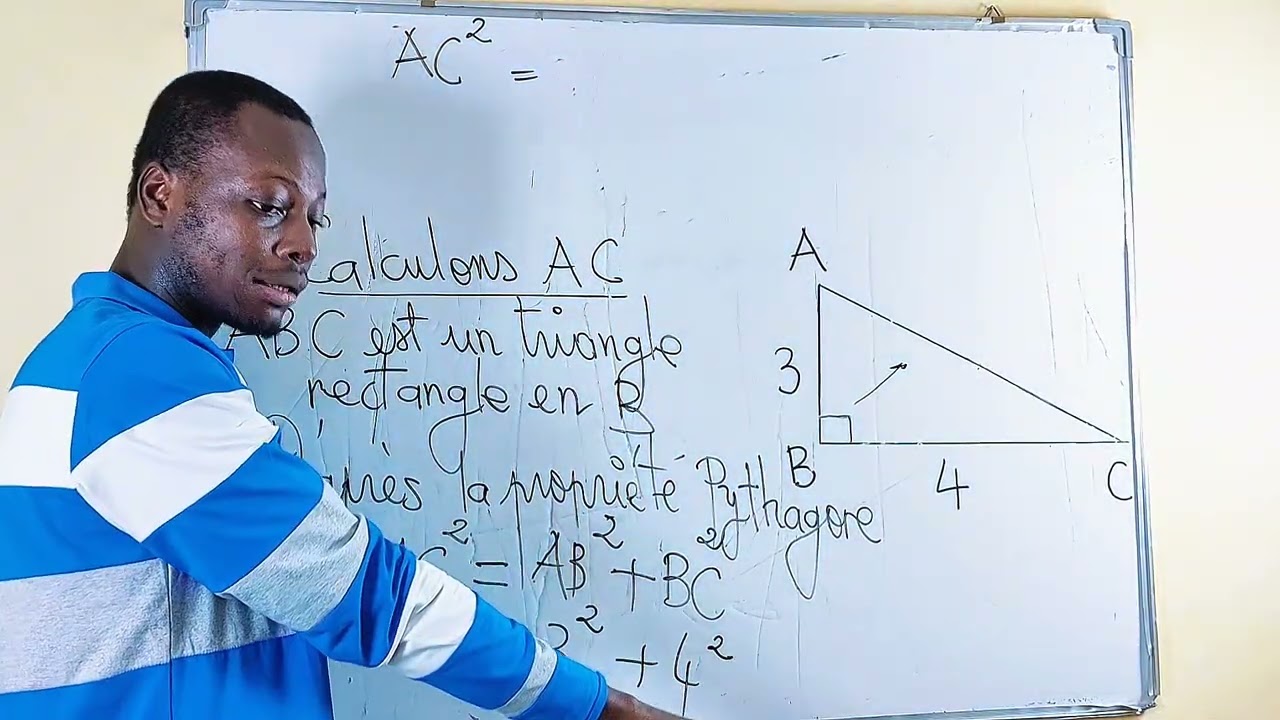 AC² =
Calculons AC
ABC est un triangle
rectangle en B
D'après la propriété Pythagore
AC² = AB² + BC²
3² + 4²
A
3
B
4
C